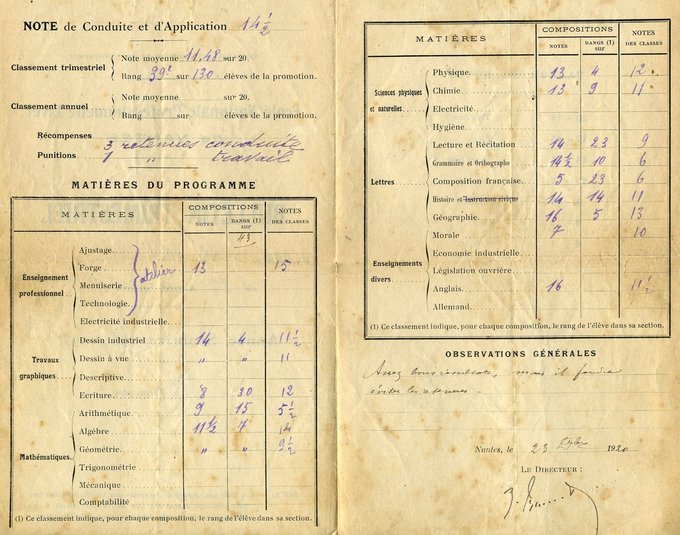 NOTE de Conduite et d'Application 14 1/2
Classement trimestriel
Note moyenne 11,48 sur 20.
Rang 39e sur 130 élèves de la promotion.
Classement annuel
Note moyenne sur 20.
Rang sur élèves de la promotion.
Récompenses
Punitions
3 retenues conduite
1 " travail
MATIÈRES DU PROGRAMME
MATIÈRES COMPOSITIONS NOTES DES CLASSES
NOTES RANGS (1) sur
43
Enseignement professionnel.
Ajustage
Forge 13 15
Menuiserie
Technologie
atelier
Electricité industrielle.
Travaux graphiques
Dessin industriel 14 4 11 1/2
Dessin à vue " " 11
Descriptive
Ecriture 8 30 12
Mathématiques
Arithmétique 9 15 5 1/2
Algèbre 11 1/2 7 14
Géométrie " " 9 1/2
Trigonométrie
Mécanique
Comptabilité
(1) Ce classement indique, pour chaque composition, le rang de l'élève dans sa section.
MATIÈRES COMPOSITIONS NOTES DES CLASSES
NOTES RANGS (1) sur
Sciences physiques et naturelles.
Physique 13 4 12
Chimie 13 9 11
Electricité
Hygiène
Lettres
Lecture et Récitation 14 23 9
Grammaire et Orthographe 14 1/2 10 6
Composition française 5 23 6
Histoire et Instruction civique 14 14 11
Géographie 16 5 13
Morale 7 10
Enseignements divers
Economie industrielle
Législation ouvrière
Anglais 16 11 1/2
Allemand
(1) Ce classement indique, pour chaque composition, le rang de l'élève dans sa section.
OBSERVATIONS GÉNÉRALES
Assez bons résultats, mais il faudra
éviter les retenues.
Nantes, le 23 1920
LE DIRECTEUR :